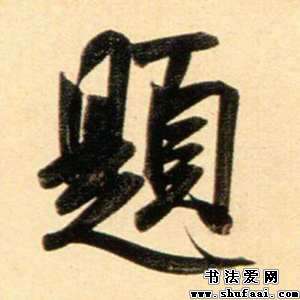 題
书法爱网
www.shufaai.com